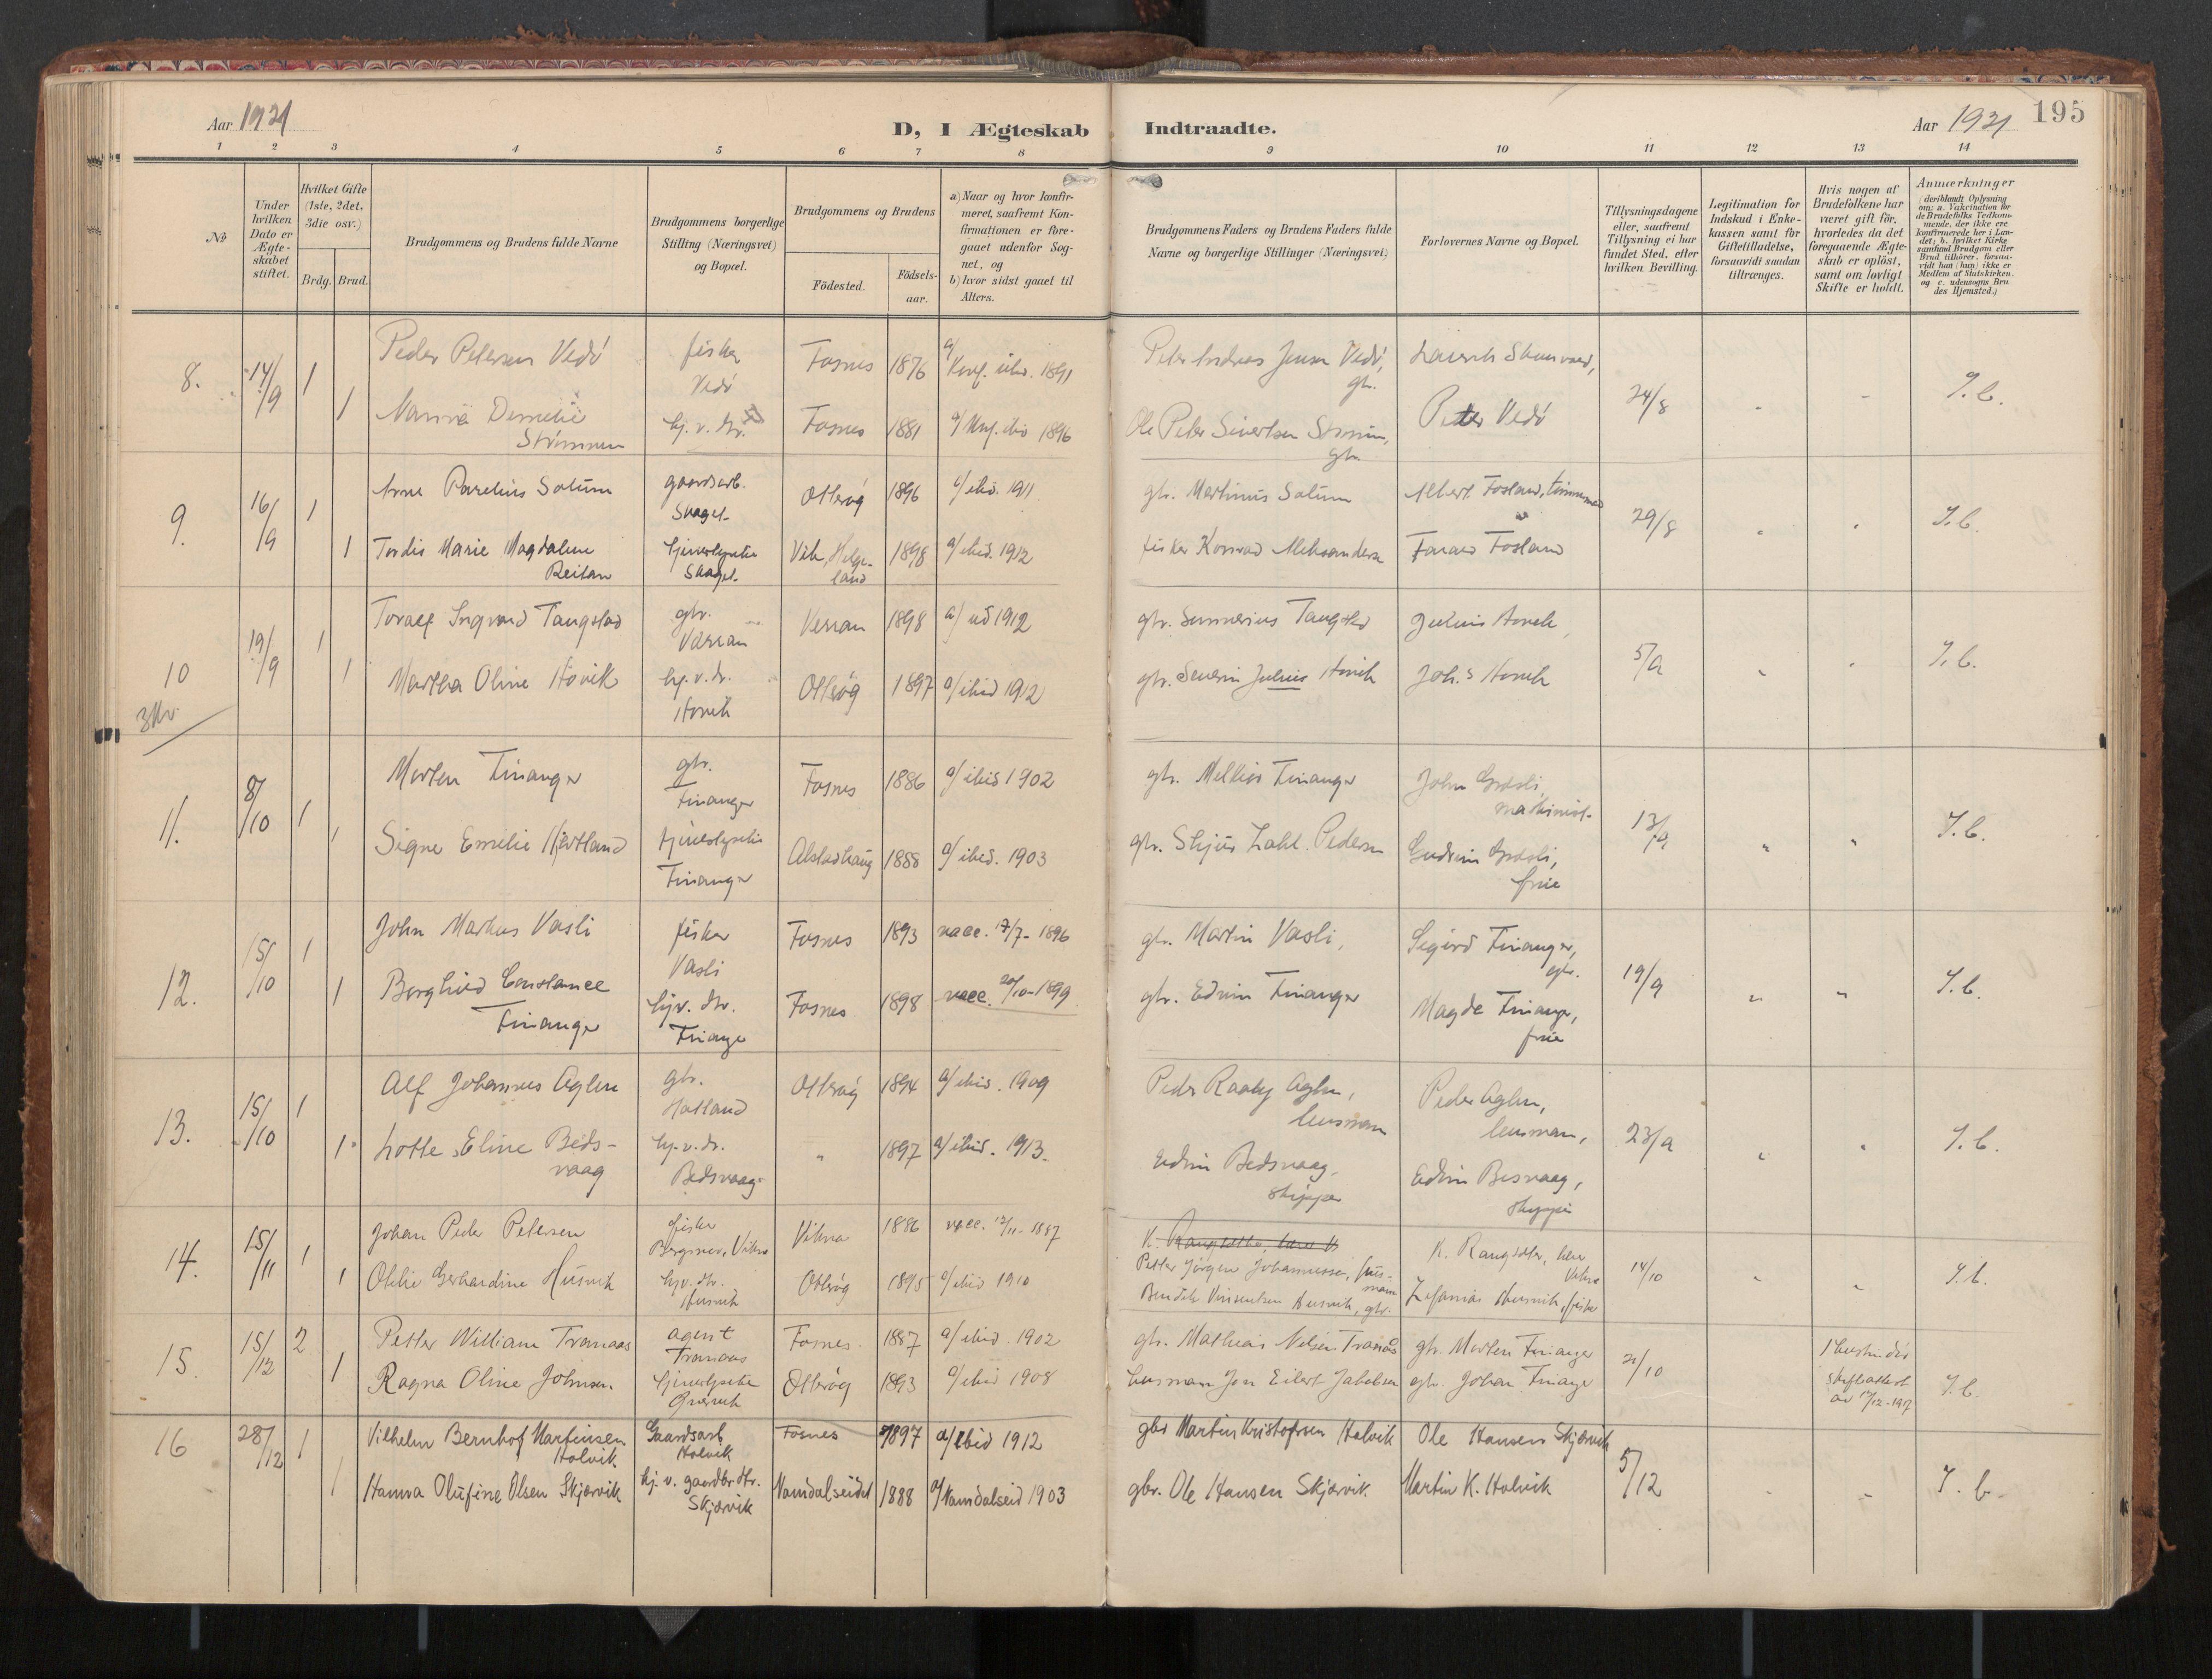 Aar 1921
D, I Ægteskab Indtraadte.
Aar 1921 195
1 2 3 4 5 6 7 8 9 10 11 12 13 14
No
Under hvilken Dato er Ægteskabet stiftet.
Hvilket Gifte (1ste, 2det, 3die osv.)
Brdg. Brud.
Brudgommens og Brudens fulde Navne
Brudgommens borgerlige Stilling (Næringsvei) og Bopæl.
Brudgommens og Brudens
Födested. Födsels-aar.
a) Naar og hvor konfirmeret, saafremt Konfirmationen er foregaaet udenfor Sognet, og
b) hvor sidst gaaet til Alters.
Brudgommens Faders og Brudens Faders fulde Navne og borgerlige Stillinger (Næringsvei)
Forlovernes Navne og Bopæl.
Tillysningsdagene eller, saafremt Tillysning ei har fundet Sted, efter hvilken Bevilling.
Legitimation for Indskud i Enkekassen samt for Giftetilladelse, forsaavidt saadan tiltrænges.
Hvis nogen af Brudefolkene har været gift för, hvorledes da det foregaaende Ægteskab er oplöst, samt om lovligt Skifte er holdt.
Anmærkninger
(deriblandt Oplysning om: a. Vakcination for de Brudefolks Vedkommende, der ikke ere konfirmerede her i Landet; b. hvilket Kirkesamfund Brudgom eller Brud tilhörer, forsaavidt han (hun) ikke er Medlem af Statskirken, og c. udensogns Brudes Hjemsted.)
8. 14/9 1 Peder Petersen Vedö fisker Vedö Fosnes 1876 a/ Konf. ibid. 1891 Peter Andreas Jensen Vedö, gbr. 24/8 " " J. b.
1 Strömmen hj. v. dtr. Fosnes 1881 a/ Konf. ibid 1896 Ole Peter Sivertsen gbr. Peter Vedö
9. 16/9 1 Arne Parelius Solum gaardsarb. Skaget Otteröy 1896 a/ ibid. 1911 gbr. Martinus Solum Albert Fosland, 29/8 " " J. b.
1 Tordis Marie Magdalene Reitan Skaget Vik, Helgeland 1898 a/ ibid. 1912 fisker Konrad Aleksandersen Fosland
10 19/9 1 Toralf Ingvard Tangstad gbr. Verran Verran 1898 a/ 1912 gbr. Tangstad Julius Hovik 5/9 " " J. b.
1 Martha Oline Hovik hj. v. dr. Hovik Otteröy 1897 a/ ibid 1912 gbr. Severin Julius Hovik Joh.s Hovik
11. 8/10 1 Morten Finanger gbr. Finanger Fosnes 1886 a/ ibid 1902 gbr. Melkior Finanger John maskinist 13/9 " " J. b.
1 Signe Emelie Hjortland tjenestepike Finanger Alstadhaug 1888 a/ ibid. 1903 gbr. Zahl Pedersen Gudrun frue
12. 15/10 1 John Markus Vasli fisker Vasli Fosnes 1893 vacc. 17/7-1896 gbr. Martin Vasli, Sigurd Finanger, gbr. 19/9 " " J. b.
1 Borghild Constance Finanger hjv. dtr. Finanger Fosnes 1898 vacc. 20/10-1899 gbr. Edvin Finanger Magda Finanger, frue
13. 15/10 1 Alf Johannes Aglen gbr. Hatland Otteröy 1894 a/ ibid. 1909 Peder Raaby Aglen, lensmann Peder Aglen, lensman, 23/9 " " J. b.
1 Lotte Eline Bedsvaag hj. v. dr. Bedsvaag " 1897 a/ ibid. 1913. Edvin Bedsvaag, skipper Edvin Besvaag, skipper
14. 15/11 1 Johan Peder Petersen fisker Vikna Vikna 1886 vacc. 12/11-1887 Petter Jörgen Johannessen, husmann 14/10 " " J. b.
1 Othlie Gerhardine Husvik hjv. dtr. Husvik Otteröy 1895 a/ ibid 1910 Husvik, gbr. Zefanias Husvik, fisker
15. 15/12 2 Petter William Tranaas agent Tranaas Fosnes 1887 a/ ibid. 1902 gbr. Mathias Nilsen Tranaas gbr. Morten Finanger 21/10 J. b.
1 Ragna Oline Johnsen tjenestepike Otteröy 1893 a/ ibid 1908 husmann Jon Eilert Jakobsen gbr. Johan Finanger
16 28/12 1 Vilhelm Bernhof Martinsen Holvik Gaardsarb Holvik Fosnes 1897 a/ ibid 1912 gbr Martin Kristofersen Holvik Ole Hansen Skjærvik 5/12 " " J. b.
1 Hanna Olufine Olsen Skjærvik hj. v. gaardbr. dtr. Skjærvik Namdalseidet 1888 a/ Namdalseid 1903 gbr. Ole Hansen Skjærvik Martin K. Holvik